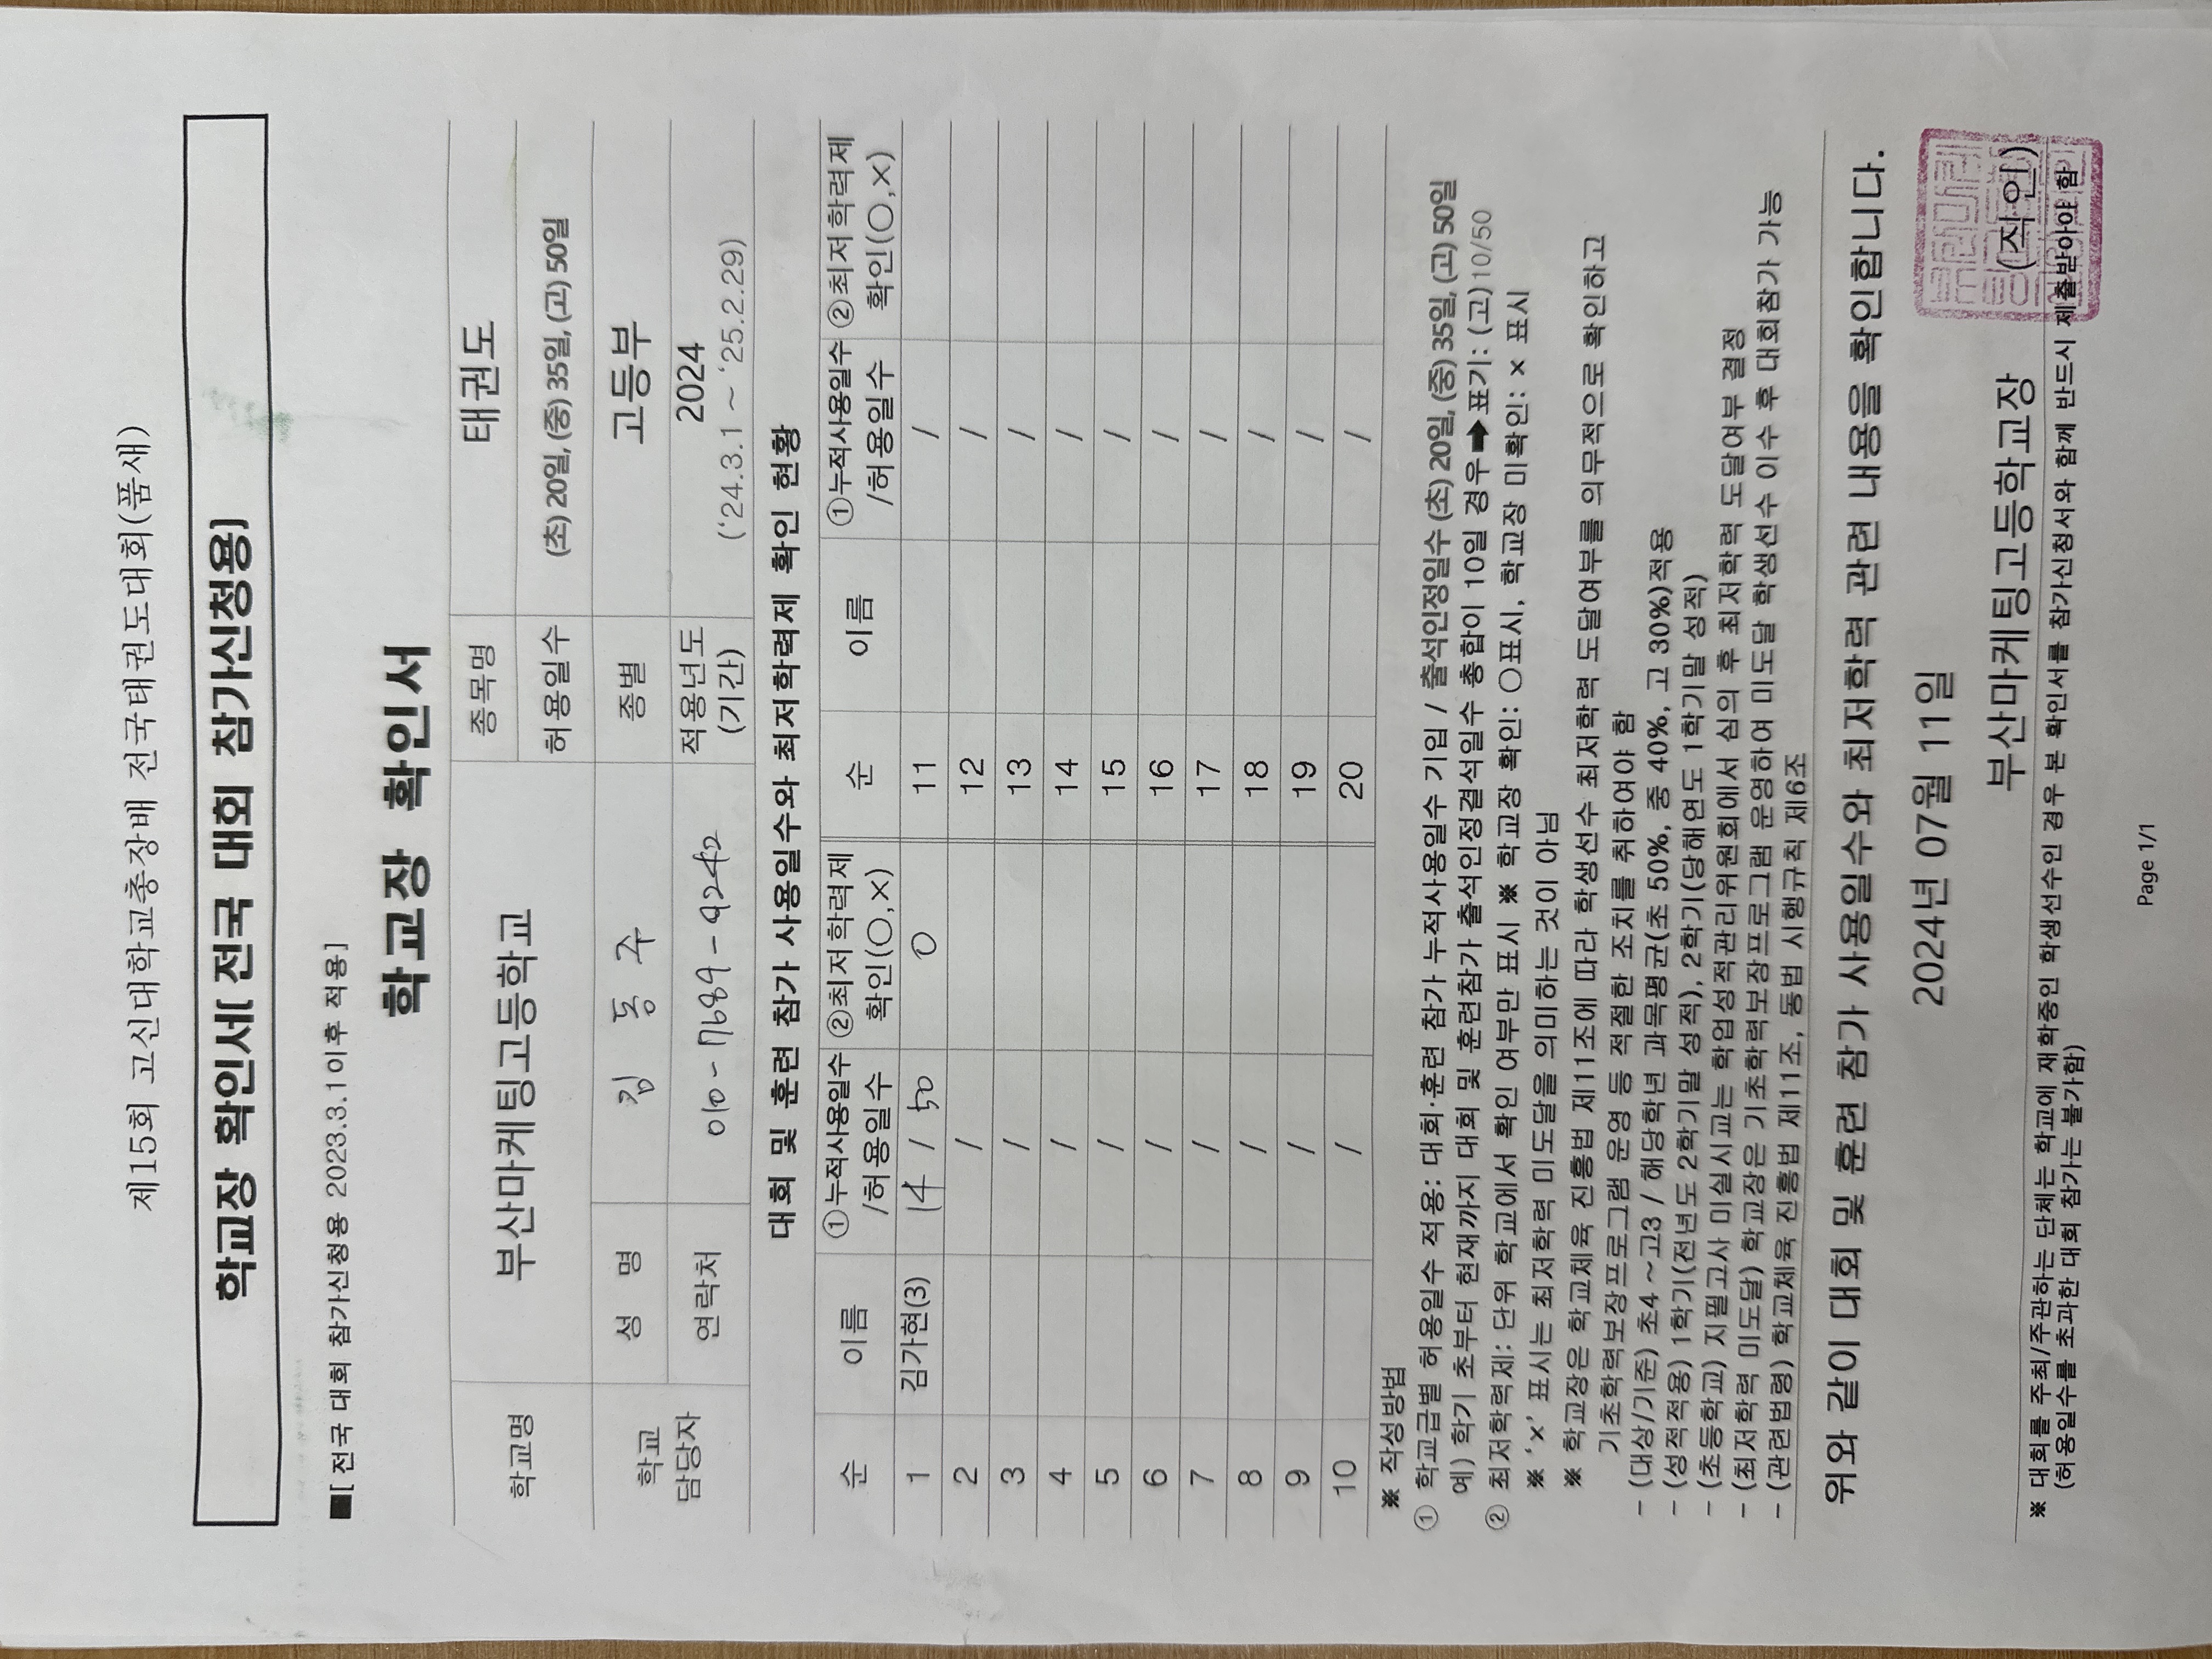 제15회 고신대학교총장배 전국태권도대회(품새)
학교장 확인서[전국 대회 참가신청용]
■[ 전국 대회 참가신청용 2023.3.1이후 적용]
학교장 확인서
학교명 부산마케팅고등학교 종목명 태권도
허용일수 (초) 20일, (중) 35일, (고) 50일
학교 담당자 성 명 김 동 주 종별 고등부
연락처 010-7689-9242 적용년도 (기간) 2024 ('24.3.1 ~ '25.2.29)
대회 및 훈련 참가 사용일수와 최저학력제 확인 현황
순 이름 ①누적사용일수 /허용일수 ②최저학력제 확인(○,×) 순 이름 ①누적사용일수 /허용일수 ②최저학력제 확인(○,×)
1 김가현(3) 14 / 50 O 11 /
2 / 12 /
3 / 13 /
4 / 14 /
5 / 15 /
6 / 16 /
7 / 17 /
8 / 18 /
9 / 19 /
10 / 20 /
※ 작성방법
① 학교급별 허용일수 적용: 대회·훈련 참가 누적사용일수 기입 / 출석인정일수 (초) 20일, (중) 35일, (고) 50일
예) 학기 초부터 현재까지 대회 및 훈련참가 출석인정결석일수 총합이 10일 경우➡표기: (고) 10/50
② 최저학력제: 단위 학교에서 확인 여부만 표시 ※ 학교장 확인: ○표시, 학교장 미확인: × 표시
※ '×' 표시는 최저학력 미도달을 의미하는 것이 아님
※ 학교장은 학교체육 진흥법 제11조에 따라 학생선수 최저학력 도달여부를 의무적으로 확인하고
기초학력보장프로그램 운영 등 적절한 조치를 취하여야 함
- (대상/기준) 초4 ~고3 / 해당학년 과목평균(초 50%, 중 40%, 고 30%)적용
- (성적적용) 1학기(전년도 2학기말 성적), 2학기(당해연도 1학기말 성적)
- (초등학교) 지필고사 미실시교는 학업성적관리위원회에서 심의 후 최저학력 도달여부 결정
- (최저학력 미도달) 학교장은 기초학력보장프로그램 운영하여 미도달 학생선수 이수 후 대회참가 가능
- (관련법령) 학교체육 진흥법 제11조, 동법 시행규칙 제6조
위와 같이 대회 및 훈련 참가 사용일수와 최저학력 관련 내용을 확인합니다.
2024년 07월 11일
부산마케팅고등학교장 (직인)
※ 대회를 주최/주관하는 단체는 학교에 재학중인 학생선수인 경우 본 확인서를 참가신청서와 함께 반드시 제출받아야 함
(허용일수를 초과한 대회 참가는 불가함)
Page 1/1